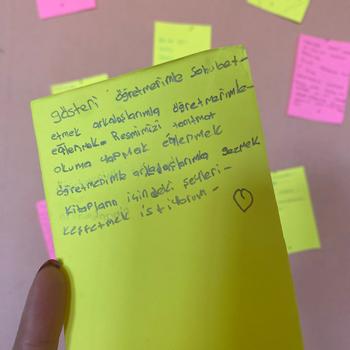 gösteri öğretmerimle Sohubet-
etmek arkalaşlarımla öğretmerimle-
eğlermek. Resmimizi tanıtmat
okuma yapmak eğlenmek
öğretmerimle arkadaşlarımla gezmek
Kitapların içindeki şeyleri-
keşfetmek istiyorum-